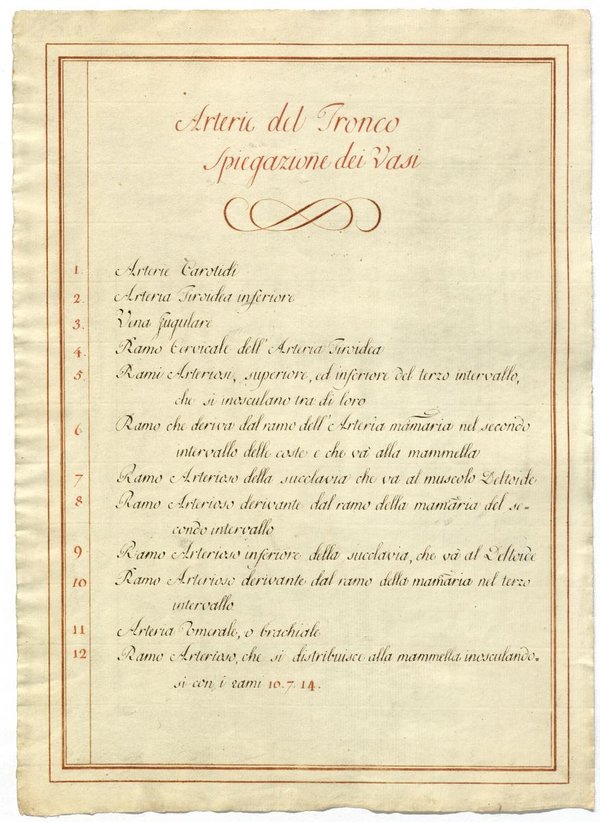 Arterie del Tronco
Spiegazione dei Vasi
1. Arterie Carotidi
2. Arteria Tiroidea inferiore
3. Vena Jugulare
4. Ramo Cervicale dell'Arteria Tiroidea
5. Rami Arteriosi, superiore, ed inferiore del terzo intervallo,
che si inosculano tra di loro
6 Ramo che deriva dal ramo dell'Arteria mam̃aria nel secondo
intervallo delle coste e che và alla mammella
7 Ramo Arterioso della succlavia che va al muscolo Deltoide
8 Ramo Arterioso derivante dal ramo della mam̃aria del se-
condo intervallo
9 Ramo Arterioso inferiore della succlavia, che và al Deltoide
10 Ramo Arterioso derivante dal ramo della mam̃aria nel terzo
intervallo
11 Arteria Omerale, o brachiale
12 Ramo Arterioso, che si distribuisce alla mammella inosculando-
si con i rami 10. 7. 14.